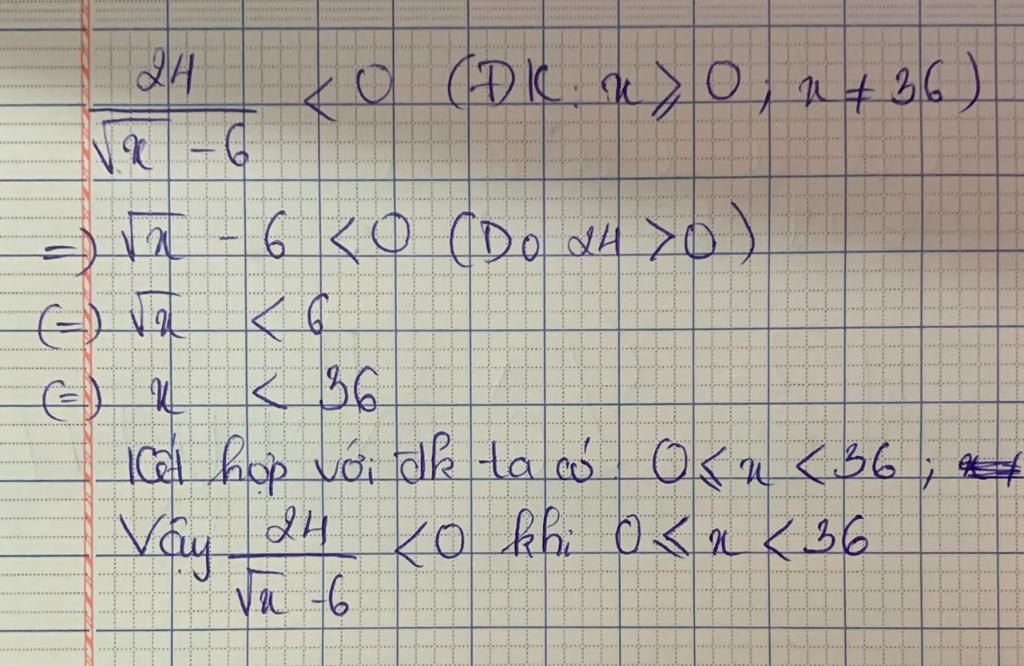 24/(√x - 6) < 0 (ĐK: x ≥ 0; x ≠ 36)
=> √x - 6 < 0 (Do 24 > 0)
(=) √x < 6
(=) x < 36
Kết hợp với đk ta có: 0 ≤ x < 36;
Vậy 24/(√x - 6) < 0 khi 0 ≤ x < 36